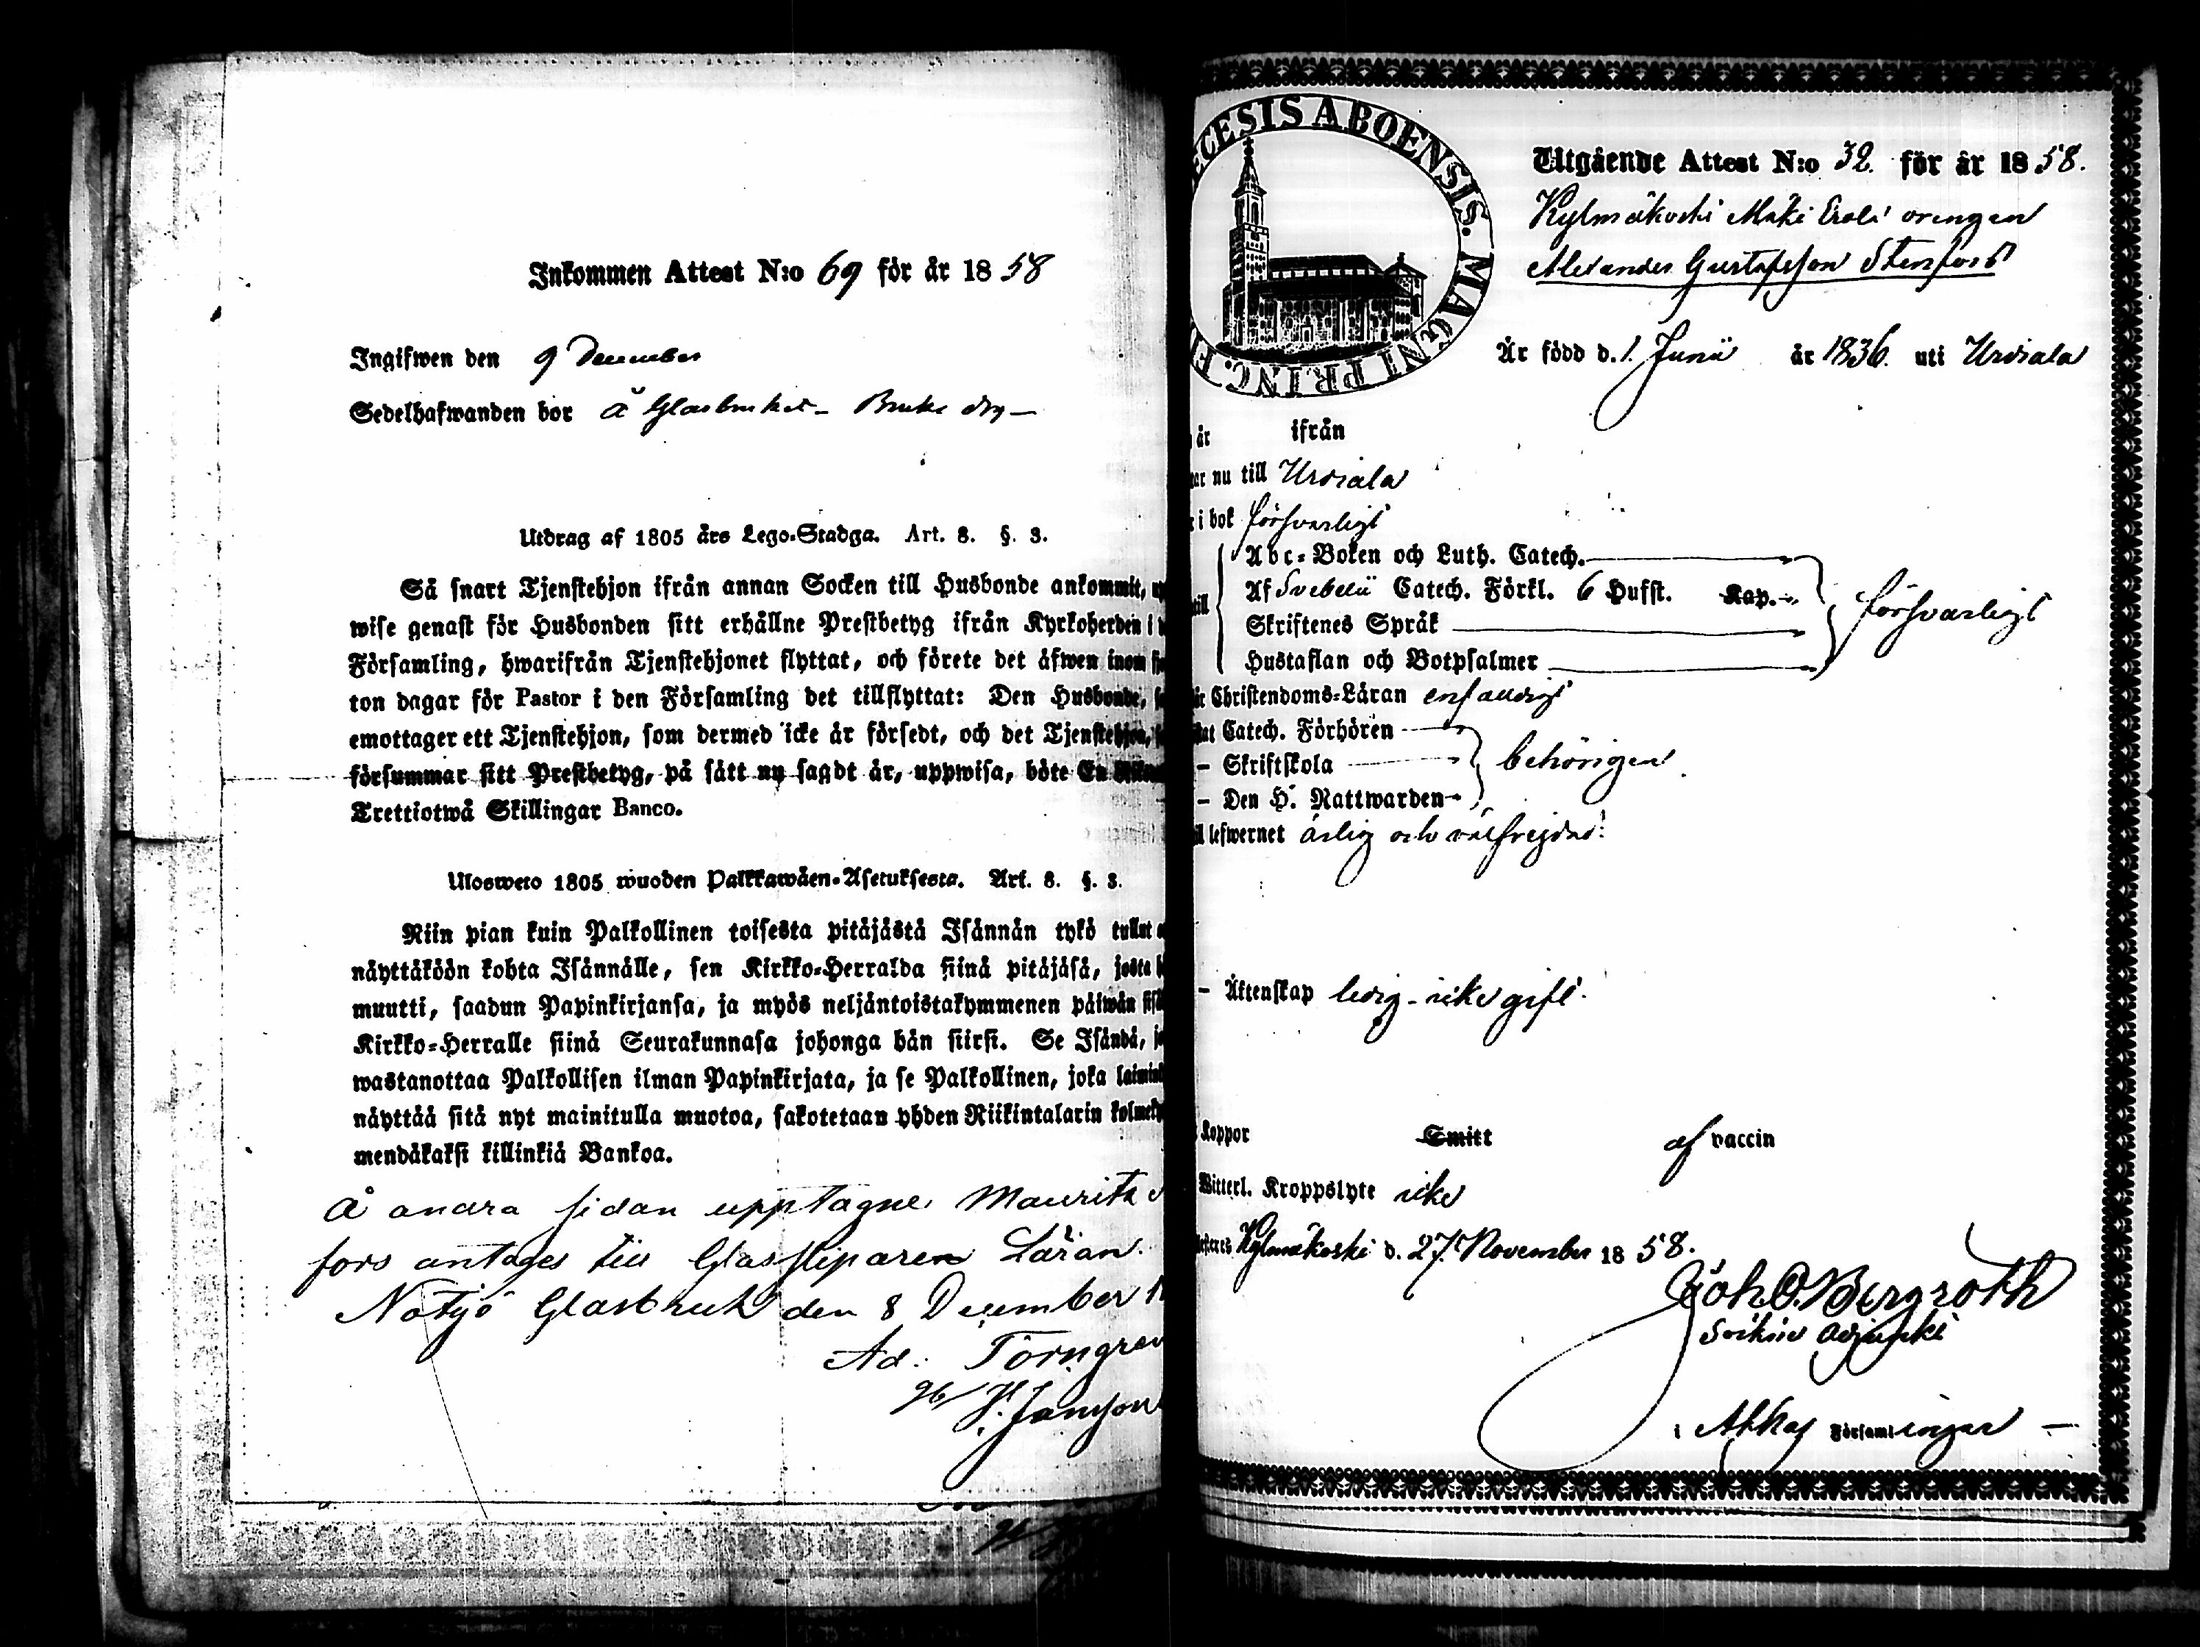 Inkommen Attest N:o 69 för år 1858
Ingifwen den 9 December
Sedelhafwanden bor å Glasbruket - Bruks
Utdrag af 1805 års Lego-Stadga. Art. 8. §. 3.
Så snart Tjenstehjon ifrån annan Socken till Husbonde ankommit,
wise genast för Husbonden sitt erhållne Prestbetyg ifrån Kyrkoherden i
Församling, hwarifrån Tjenstehjonet flyttat, och förete det äfwen inom
ton dagar för Pastor i den Församling det tillflyttat: Den Husbonde,
emottager ett Tjenstehjon, som dermed icke är försedt, och det Tjenstehjon,
försummar sitt Prestbetyg, på sätt nu sagdt är, uppwisa, böte En
Trettiotwå Skillingar Banco.
Ulosweto 1805 wuoden Palkkawäen-Asetuksesta. Art. 8. §. 3.
Niin pian kuin Palkollinen toisesta pitäjästä Isännän tykö tullut
näyttäköön kohta Isännälle, sen Kirkko-Herralda siinä pitäjäsä, josta
muutti, saadun Papinkirjansa, ja myös neljäntoistakymmenen päiwän
Kirkko-Herralle siinä Seurakunnasa johonga hän siirsi. Se Isändä,
wastanottaa Palkollisen ilman Papinkirjata, ja se Palkollinen, joka
näyttää sitä nyt mainitulla muotoa, sakotetaan yhden Riikintalarin
mendäkaksi killinkiä Bankoa.
Å andra sidan upptagne Mauritz
fors antages till Glassliparen Läran.
Notsjö Glasbruk den 8 December
Ad. Törngren
H. Janson
DIOECESIS ABOENSIS. MAGNI PRINC. F
Utgående Attest N:o 32. för år 1858.
Kylmäkoski Mäki Erola drengen
Alexander Gustafsson Stenfors
Är född d. 1. Junii år 1836. uti Urdiala
är ifrån
nu till Urdiala
i bok försvarligt
Abc-Boken och Luth. Catech.
Af Svebelii Catech. Förkl. 6 Hufst. Kap.
försvarligt
Skriftenes Språk
Hustaflan och Botpsalmer
Christendoms-Läran enfaldigt
Catech. Förhören
- Skriftskola
behörigen
- Den H. Nattwarden
lefwernet ärlig och välfrejdad.
- Äktenskap ledig - icke gift.
Koppor Smitt af vaccin
Witterl. Kroppslyte icke
Kylmäkoski d. 27. November 1858.
Joh. O. Bergroth
Sockne Adjunkt
i Akkas Församlingar